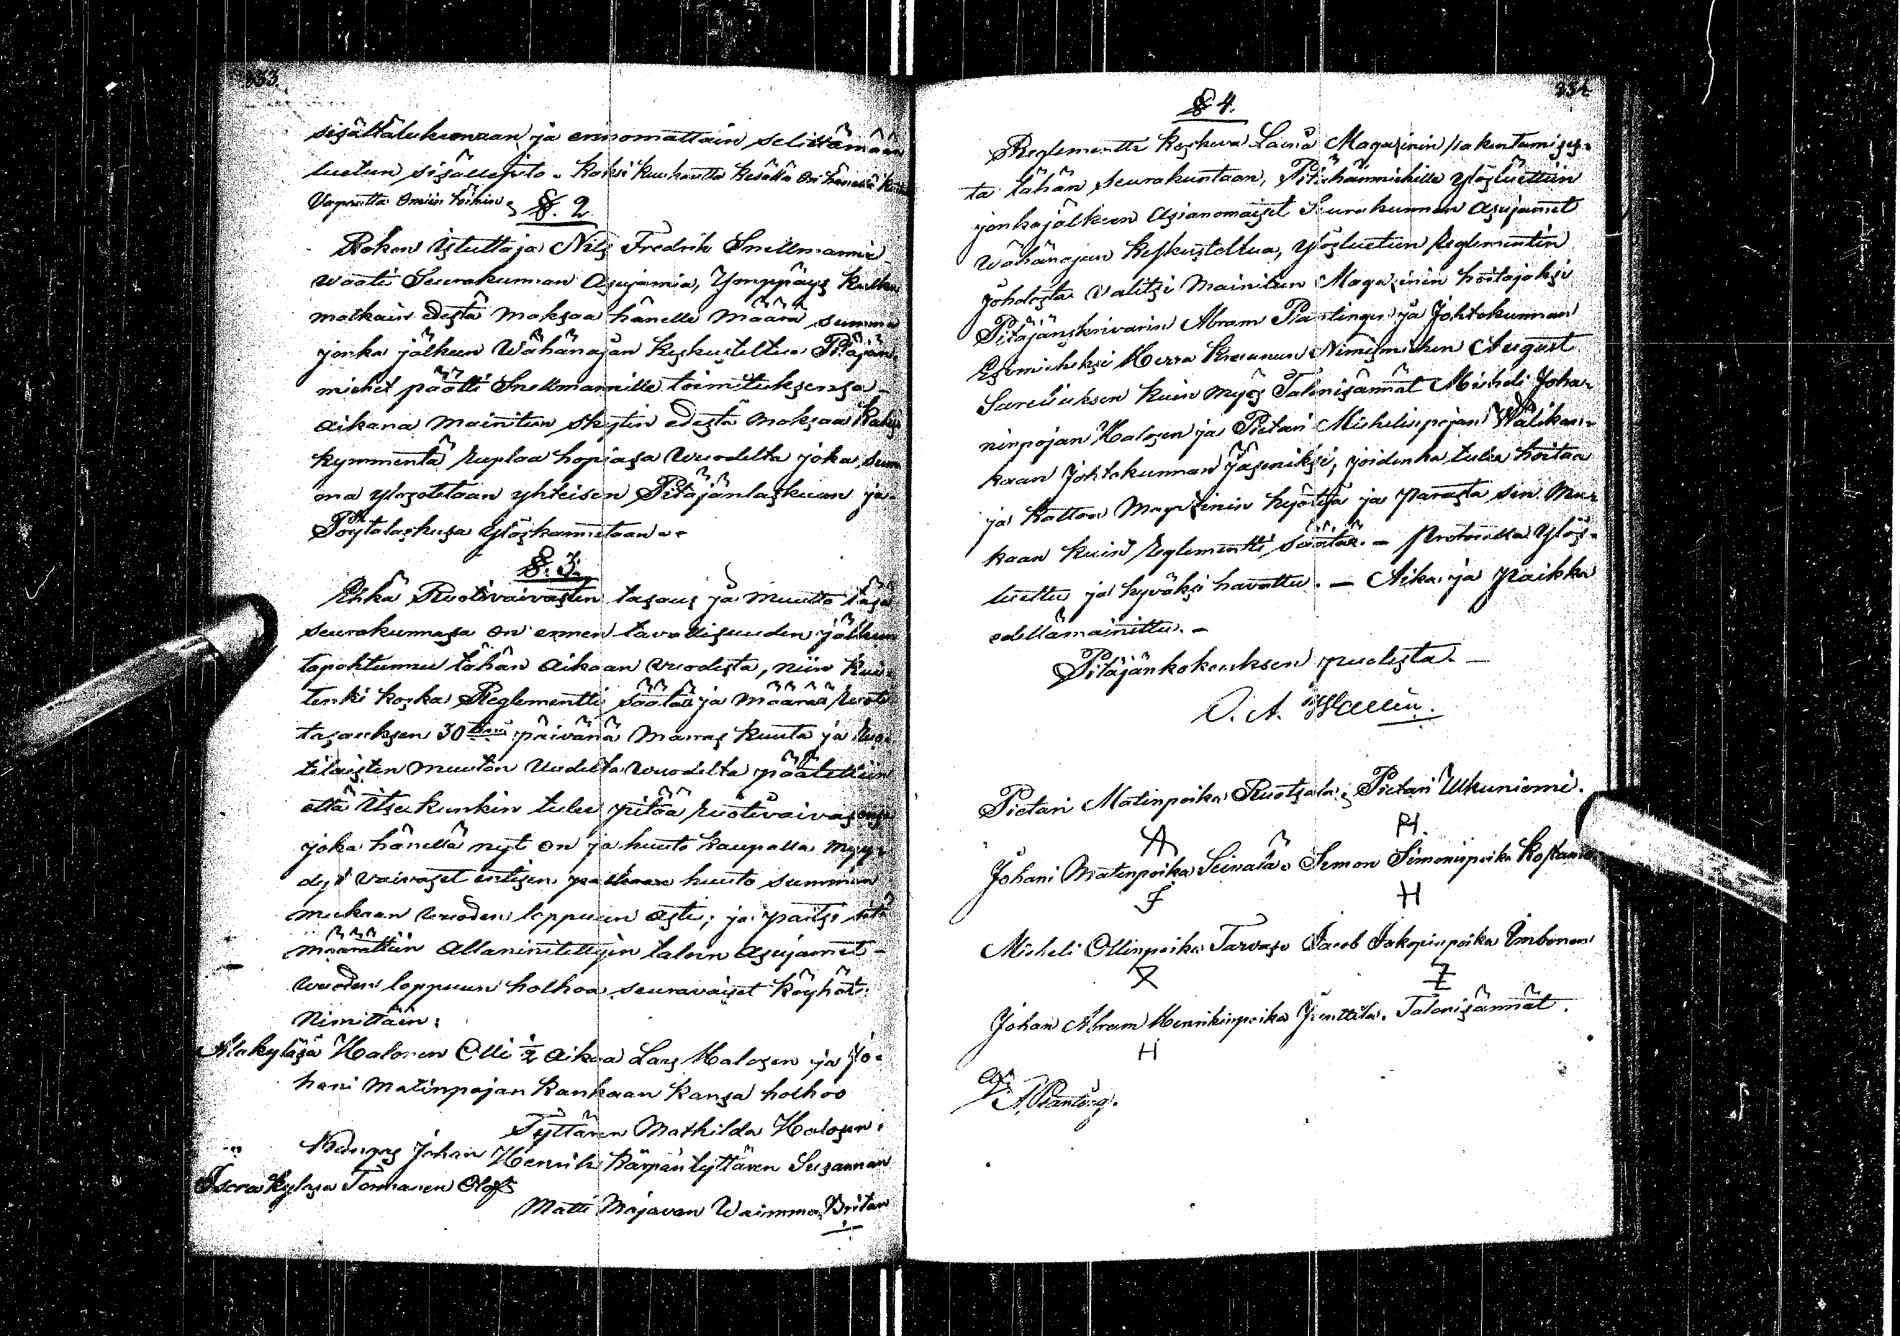 333.
sisältälukemaan ja ennomattain selittämään
luetun sisällepito. Kaksi kuukautta kesällä on hänellä
Vapautta omiin töihin.
§. 2.
Rokon istuttaja Nils Fredrik Snellmanni
waati Seurakunnan Asujamia, Ymppäys kulku
matkain edestä maksaa hänelle määrä summa
jonka jälkeen Wähänajan keskusteltua Pitäjän
miehet päätti Snellmannille toimituksensa
aikana mainitun skytin edestä maksaa Kaksi
kymmentä ruplaa hopiasa wuodelta joka sum
ma ylösotetaan yhteisen Pitäjänlaskuun ja
Pöytälaskusa Ylöskannetaan.
§. 3.
Ehkä Ruotivaivasten tasaus ja muutto täsä
seurakunnasa on ennen tavallisuuden jälkeen
tapahtunnu tähän aikaan wuodesta, niin kui-
tenki koska Reglementti säätää ja määrää ruoti
tasauksen 30 päivänä marras kuuta ja ruo-
tilaisten muuton Uudelta wuodelta päätettiin
että itse kunkin tulee pitää ruotivaivasensa
joka hänellä nyt on ja huuto kaupalla myy-
dyt vaivaset entisen huuto summan
mukaan wuoden loppuun asti; ja paitsi sitä
määrättiin allanimitettyin taloin Asujamet
wuoden loppuun holhoa seuravaiset köyhät
Nimittäin:
Alakyläsä Halosen Olli ½ aikaa Lars Halosen ja Jo-
hani Matinpojan Kankaan Kansa holhoo
Tyttären Mathilda Halosen.
Kangas Johan Henrik Kärpän tyttären Susannan
kyläsä Tonnasen Olofs
Matti Majavan Waimma Britan
334.
§ 4.
Reglementti koskeva Laina Magasinin rakentamises-
ta tähän seurakuntaan, Pitäjänmiehille Ylösluettiin
jonkajälkeen Asianomaiset Seurakunnan Asujamet
Wähänajan keskusteltua, ylösluetun Reglementin
johdosta valitsi mainitun Magasinin hoitajaksi
Pitäjänskrivarin Abram Plantingin ja Johtokunnan
Esimieheksi Herra Kruunun Nimismiehen August
Sareliuksen kuin myös Talonisännät Micheli Joha-
ninpojan Halosen ja Pietari Michelinpojan Wälikan-
kaan Johtokunnan jäseniksi, joidenka tulee hoitaa
ja Kattoa Magasinin hyötyä ja parasta sen mu-
kaan kuin Reglementti säätää. — Protocolla Ylös-
luettu ja hyväksi havattu. — Aika ja paikka
edellämainittu. —
Pitäjänkokouksen puolesta. —
O. A. Wallin.
Pietari Matinpoika Ruotsala. Pietari Ukuniemi.
Johani Matinpoika Seivalä. Simon Simoninpoika
Micheli Ollinpoika Tarvas. Jacob Jakopinpoika
Johan Abram Henrikinpoika Junttila. Talonisännät.
H